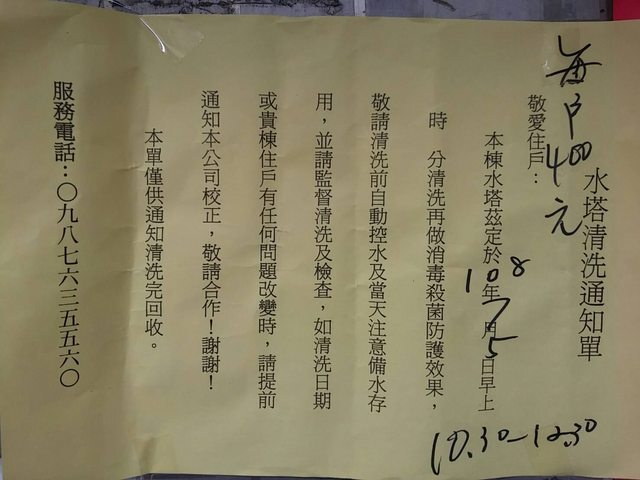 水塔清洗通知單
每戶400元
敬愛住戶：
本棟水塔茲定於108年7月5日早上
10.30-12.30
時　分清洗再做消毒殺菌防護效果，
敬請清洗前自動控水及當天注意備水存
用，並請監督清洗及檢查，如清洗日期
或貴棟住戶有任何問題改變時，請提前
通知本公司校正，敬請合作！謝謝！
本單僅供通知清洗完回收。
服務電話：○九八七六三五五六○